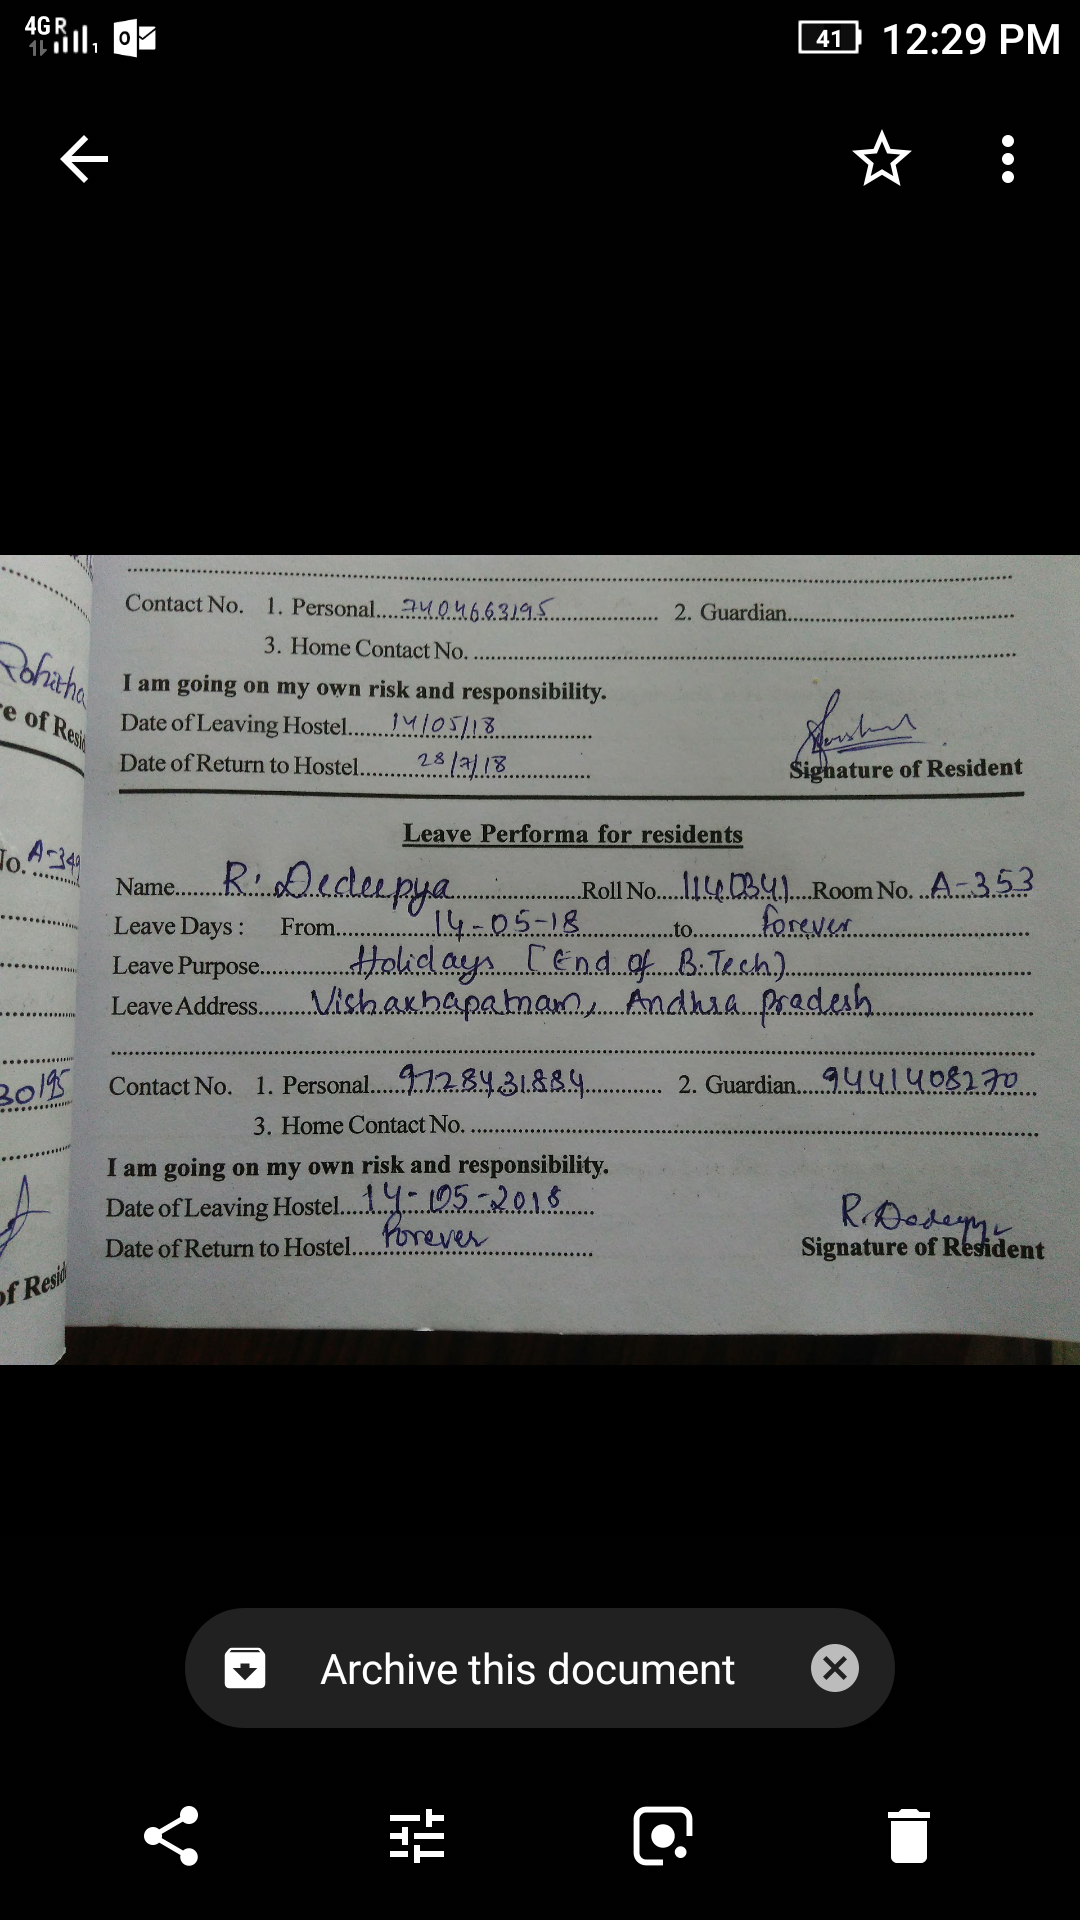 4G R
1
41 12:29 PM
Contact No. 1. Personal....7404663195.... 2. Guardian....
3. Home Contact No. ....
Rohitha
I am going on my own risk and responsibility.
e of Resid
Date of Leaving Hostel....14/05/18....
Date of Return to Hostel....28/7/18....
Signature of Resident
Leave Performa for residents
No. A-349
Name....R. Dedeepya....Roll No....1140341...Room No. ..A-353
Leave Days : From....14-05-18....to....forever....
Leave Purpose....Holidays [End of B.Tech)....
Leave Address....Vishakhapatnam, Andhra pradesh....
30195
Contact No. 1. Personal....9728431884.... 2. Guardian....9441408270....
3. Home Contact No. ....
I am going on my own risk and responsibility.
Date of Leaving Hostel....14-05-2018....
Date of Return to Hostel....Forever....
R. Dedeepya
Signature of Resident
of Resid
Archive this document